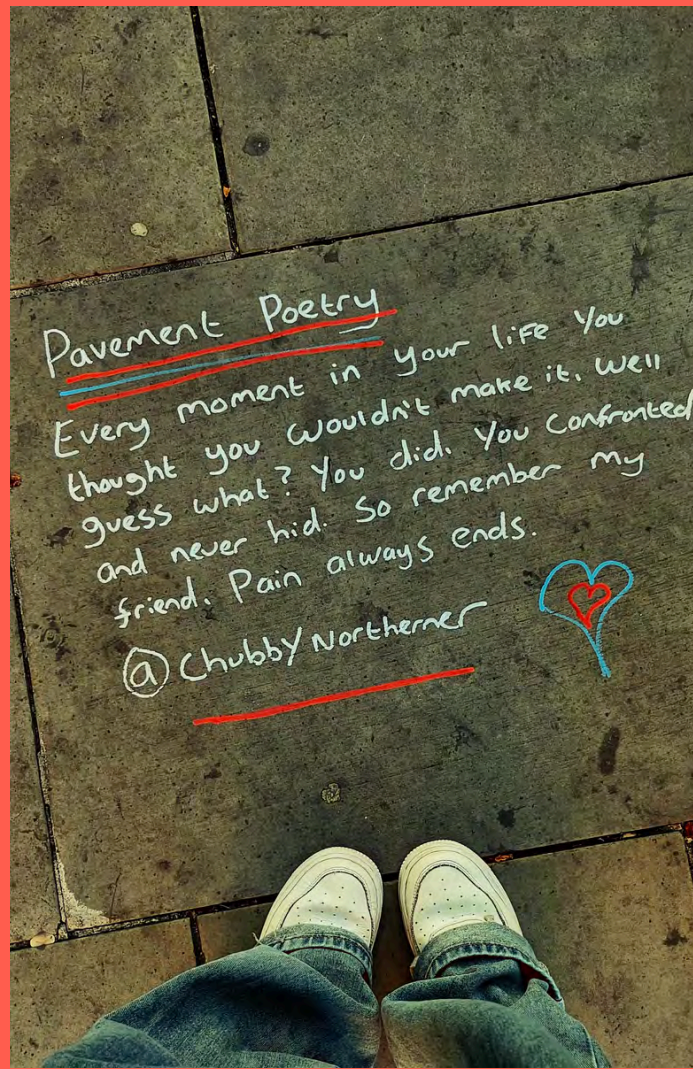 Pavement Poetry
Every moment in your life you
thought you wouldn't make it. Well
guess what? You did. You confronted
and never hid. So remember my
friend. Pain always ends.
@ChubbyNortherner